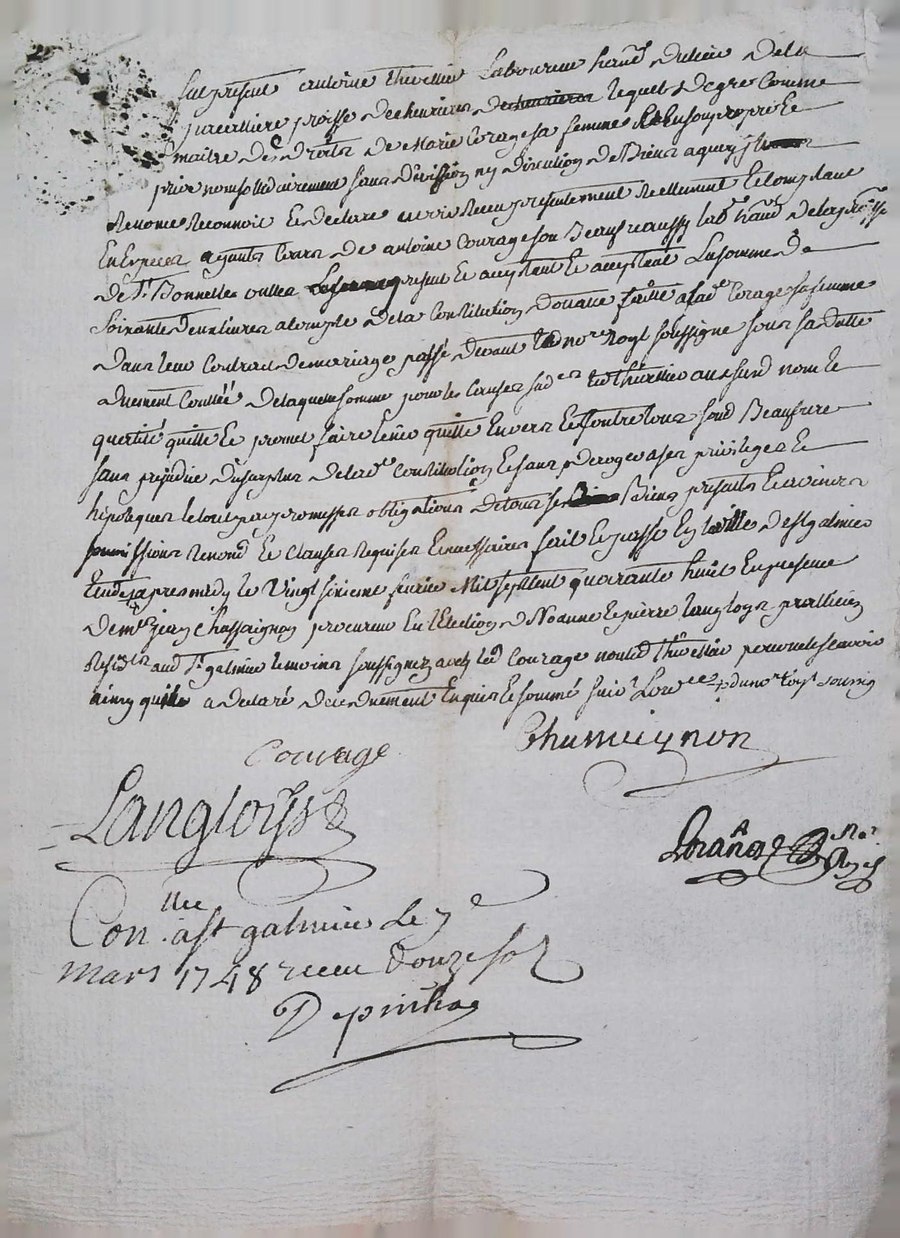 fut present antoine thevellier Laboureur habt du lieu de la
parcelliere parroisse de chevrieres lequel de gré comme
maitre des droits de marie Corage sa femme et en son propre et
privé nom solidairement sans division ny discution de biens a quoy
Renonce Reconnoit et declare avoir Receu presentement Reellement et comptant
En Especes ayants Cours de antoine Courage son Beaufrere aussy labr habt de la psse
de St Bonnet les oulles present et acceptant La somme de
soixante deux livres a compte de la Constitution dotale faitte a lade Corage sa femme
dans leur Contract de mariage passé devant le nore Royl soussigné sous sa datte
duement Conllée de laquelle somme pour les Causes sud led thevellier aud nom le
quertité quitte et promet faire tenir quitte Envers et Contre tous sond Beaufrere
sans prejudice du surplus de lade Constitution et sans deroger a ses privileges et
hipoteques le tout par promesses obligations de tous Biens presants et avenirs
soumissions Renons et clauses Requises et necessaires fait et passé En la ville de st galmier
Etude apres midy le vingt sixieme fevrier Mil sept cent quarante huit En presence
de me jean Chassaignon procureur En l'Election de Roanne et pierre langloys pratticien
aud st galmier temoins soussignez avec led Courage non led thevellier pour ne le scavoir
ainsy quil a declaré de ce duement Enquis et sommé
Courage
Chassaignon
Langloys
Nore
Royal
Conllé a st galmier le 7e
mars 1748 receu douze sols
Depinhac